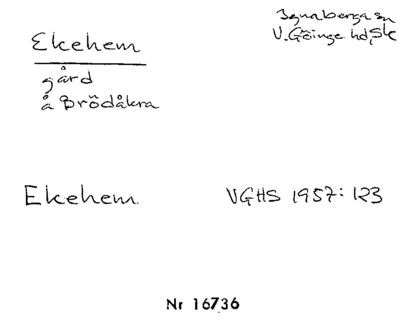 Ekehem
gård
å Brödåkra
Ignaberga sn
V. Göinge hd, Sk
Ekehem.
VGHS 1957: 123
Nr 16736